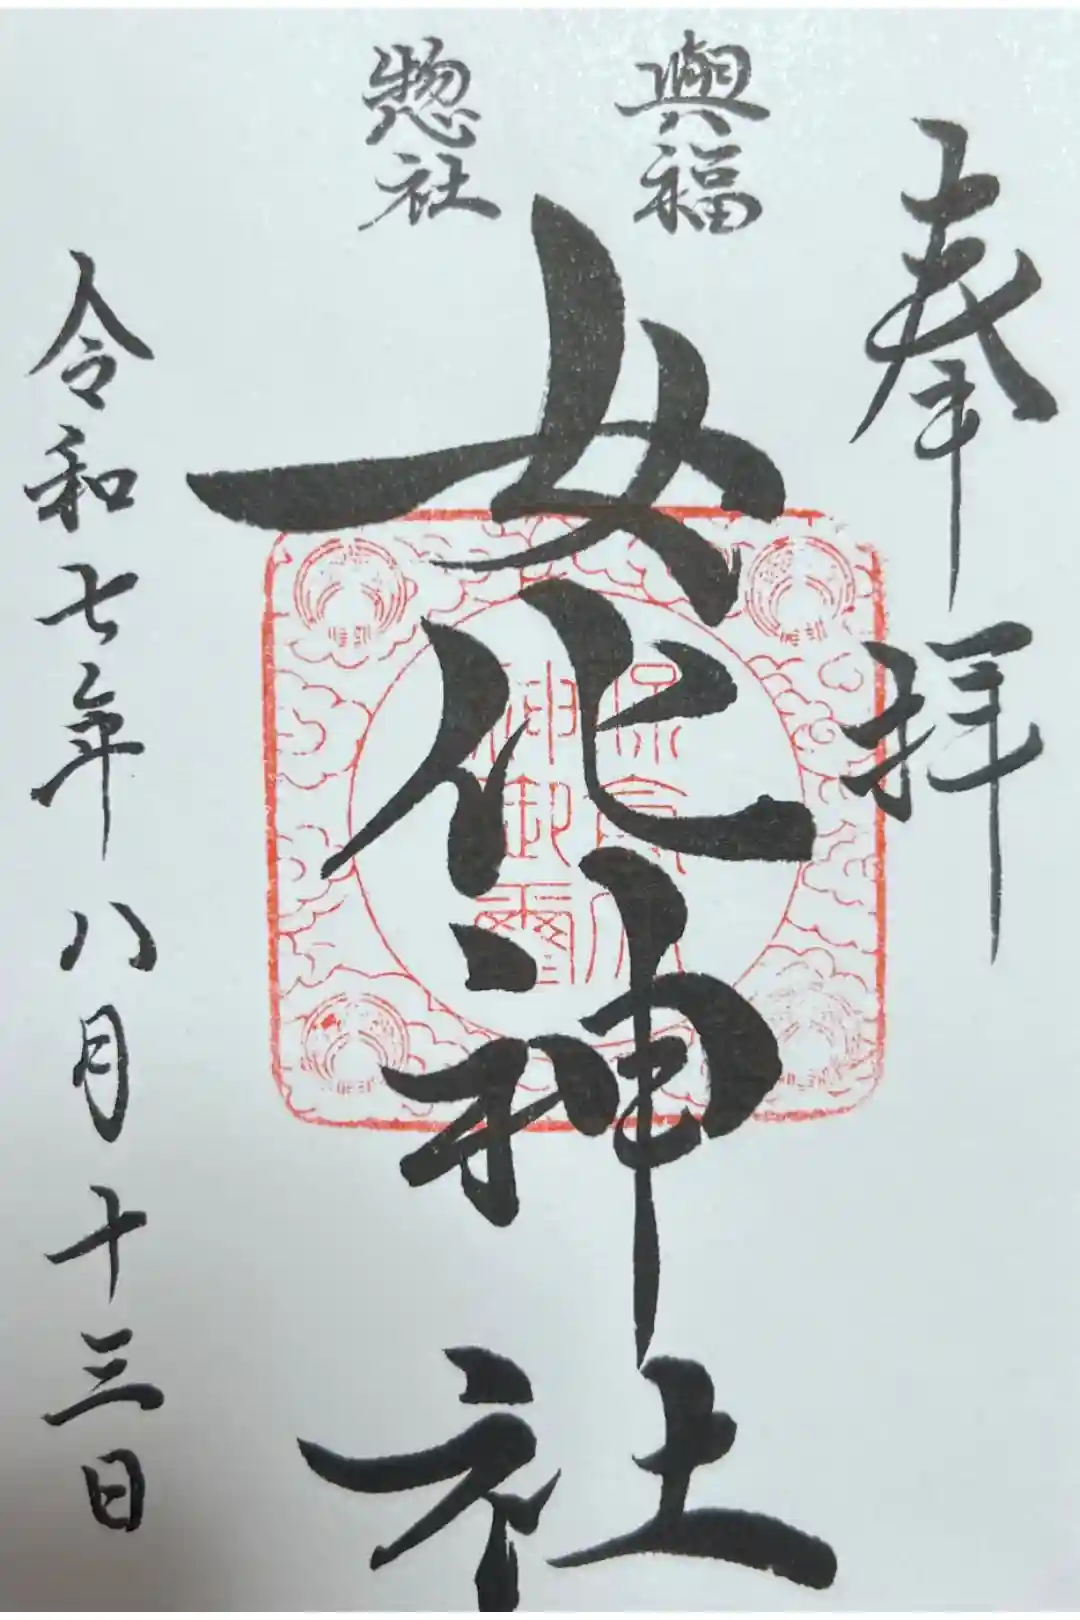 奉拝
興福
惣社
女化神社
令和七年八月十三日